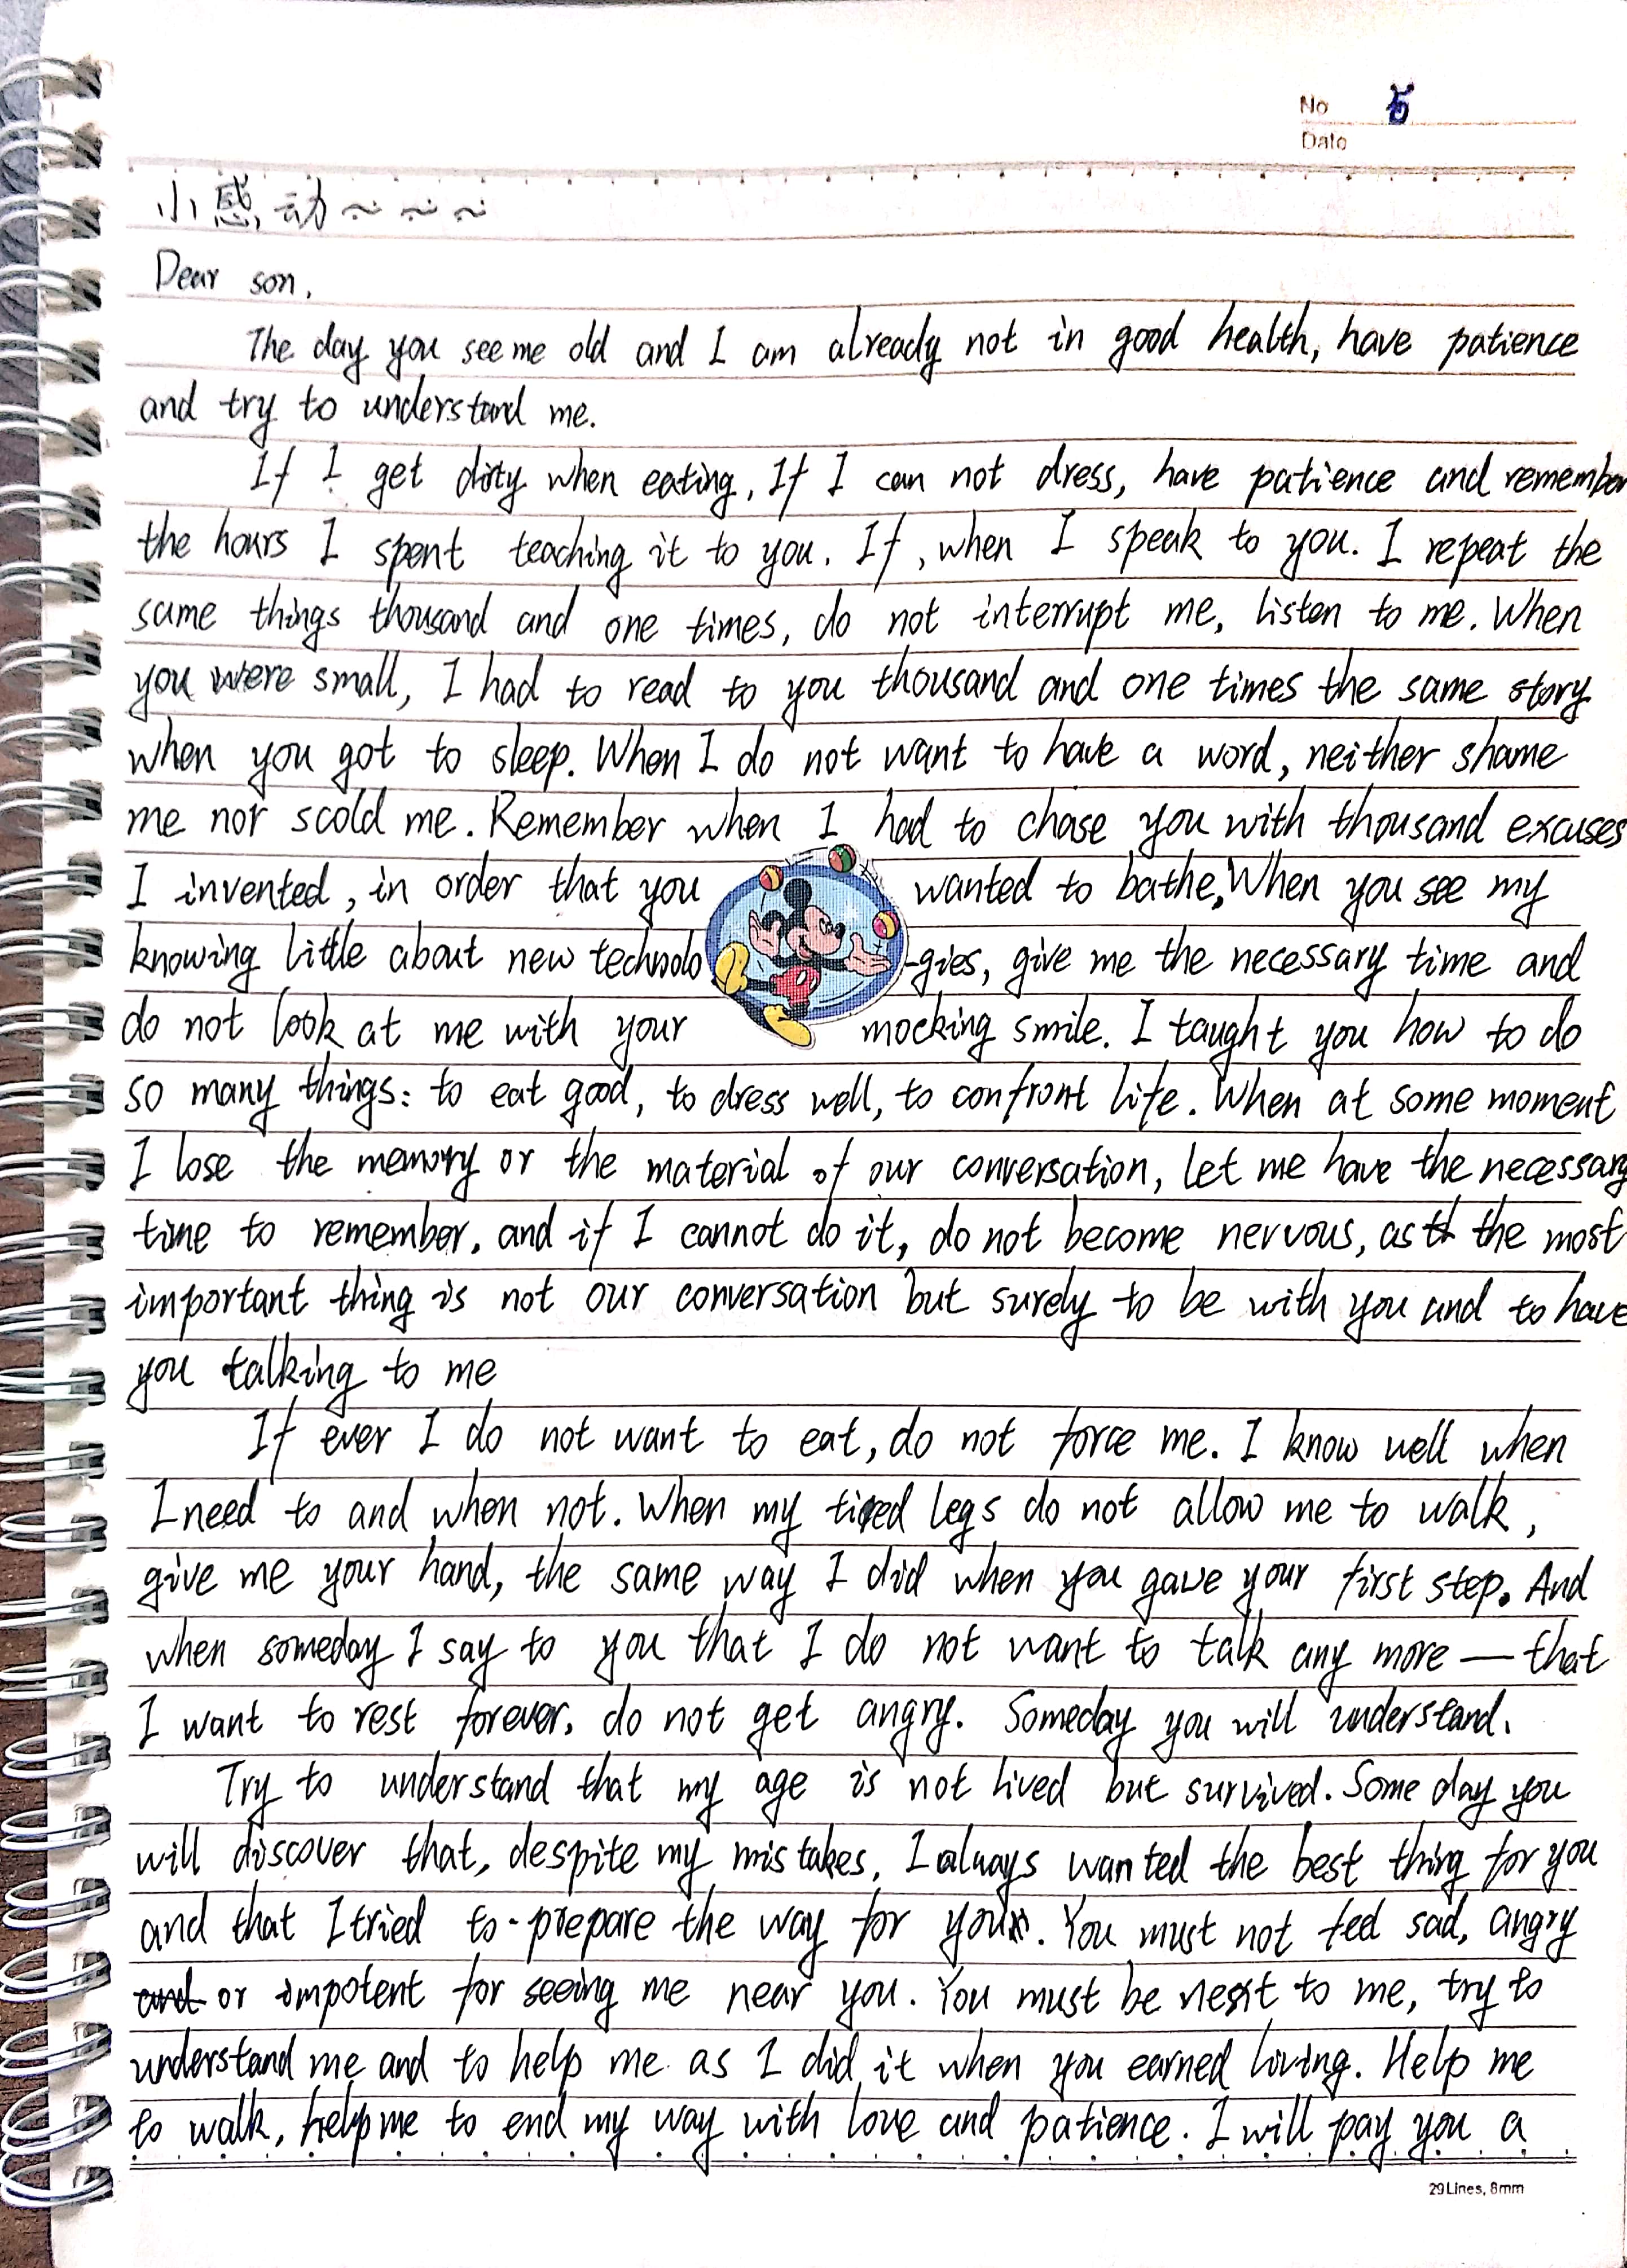 No 5
Date
小感动~~~
Dear son,
The day you see me old and I am already not in good health, have patience
and try to understand me.
If I get dirty when eating, If I can not dress, have patience and remember
the hours I spent teaching it to you. If, when I speak to you. I repeat the
same things thousand and one times, do not interrupt me, listen to me. When
you were small, I had to read to you thousand and one times the same story
when you got to sleep. When I do not want to have a word, neither shame
me nor scold me. Remember when I had to chase you with thousand excuses
I invented, in order that you wanted to bathe, When you see my
knowing little about new technolo-gies, give me the necessary time and
do not look at me with your mocking smile. I taught you how to do
so many things: to eat good, to dress well, to confront life. When at some moment
I lose the memory or the material of our conversation, let me have the necessary
time to remember, and if I cannot do it, do not become nervous, as the most
important thing is not our conversation but surely to be with you and to have
you talking to me
If ever I do not want to eat, do not force me. I know well when
I need to and when not. When my tired legs do not allow me to walk,
give me your hand, the same way I did when you gave your first step. And
when someday I say to you that I do not want to talk any more — that
I want to rest forever, do not get angry. Someday you will understand.
Try to understand that my age is not lived but survived. Some day you
will discover that, despite my mistakes, I always wanted the best thing for you
and that I tried to prepare the way for you. You must not feel sad, angry
and or impotent for seeing me near you. You must be next to me, try to
understand me and to help me as I did it when you earned living. Help me
to walk, help me to end my way with love and patience. I will pay you a
29Lines, 8mm